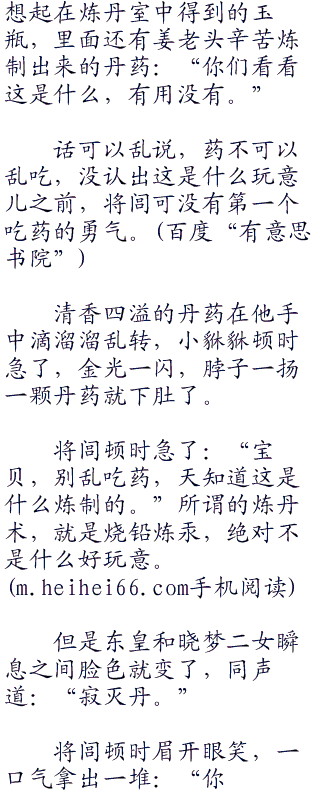 想起在炼丹室中得到的玉
瓶，里面还有姜老头辛苦炼
制出来的丹药：“你们看看
这是什么，有用没有。”
话可以乱说，药不可以
乱吃，没认出这是什么玩意
儿之前，将闾可没有第一个
吃药的勇气。(百度“有意思
书院”)
清香四溢的丹药在他手
中滴溜溜乱转，小貅貅顿时
急了，金光一闪，脖子一扬
一颗丹药就下肚了。
将闾顿时急了：“宝
贝，别乱吃药，天知道这是
什么炼制的。”所谓的炼丹
术，就是烧铅炼汞，绝对不
是什么好玩意。
(m.heihei66.com手机阅读)
但是东皇和晓梦二女瞬
息之间脸色就变了，同声
道：“寂灭丹。”
将闾顿时眉开眼笑，一
口气拿出一堆：“你